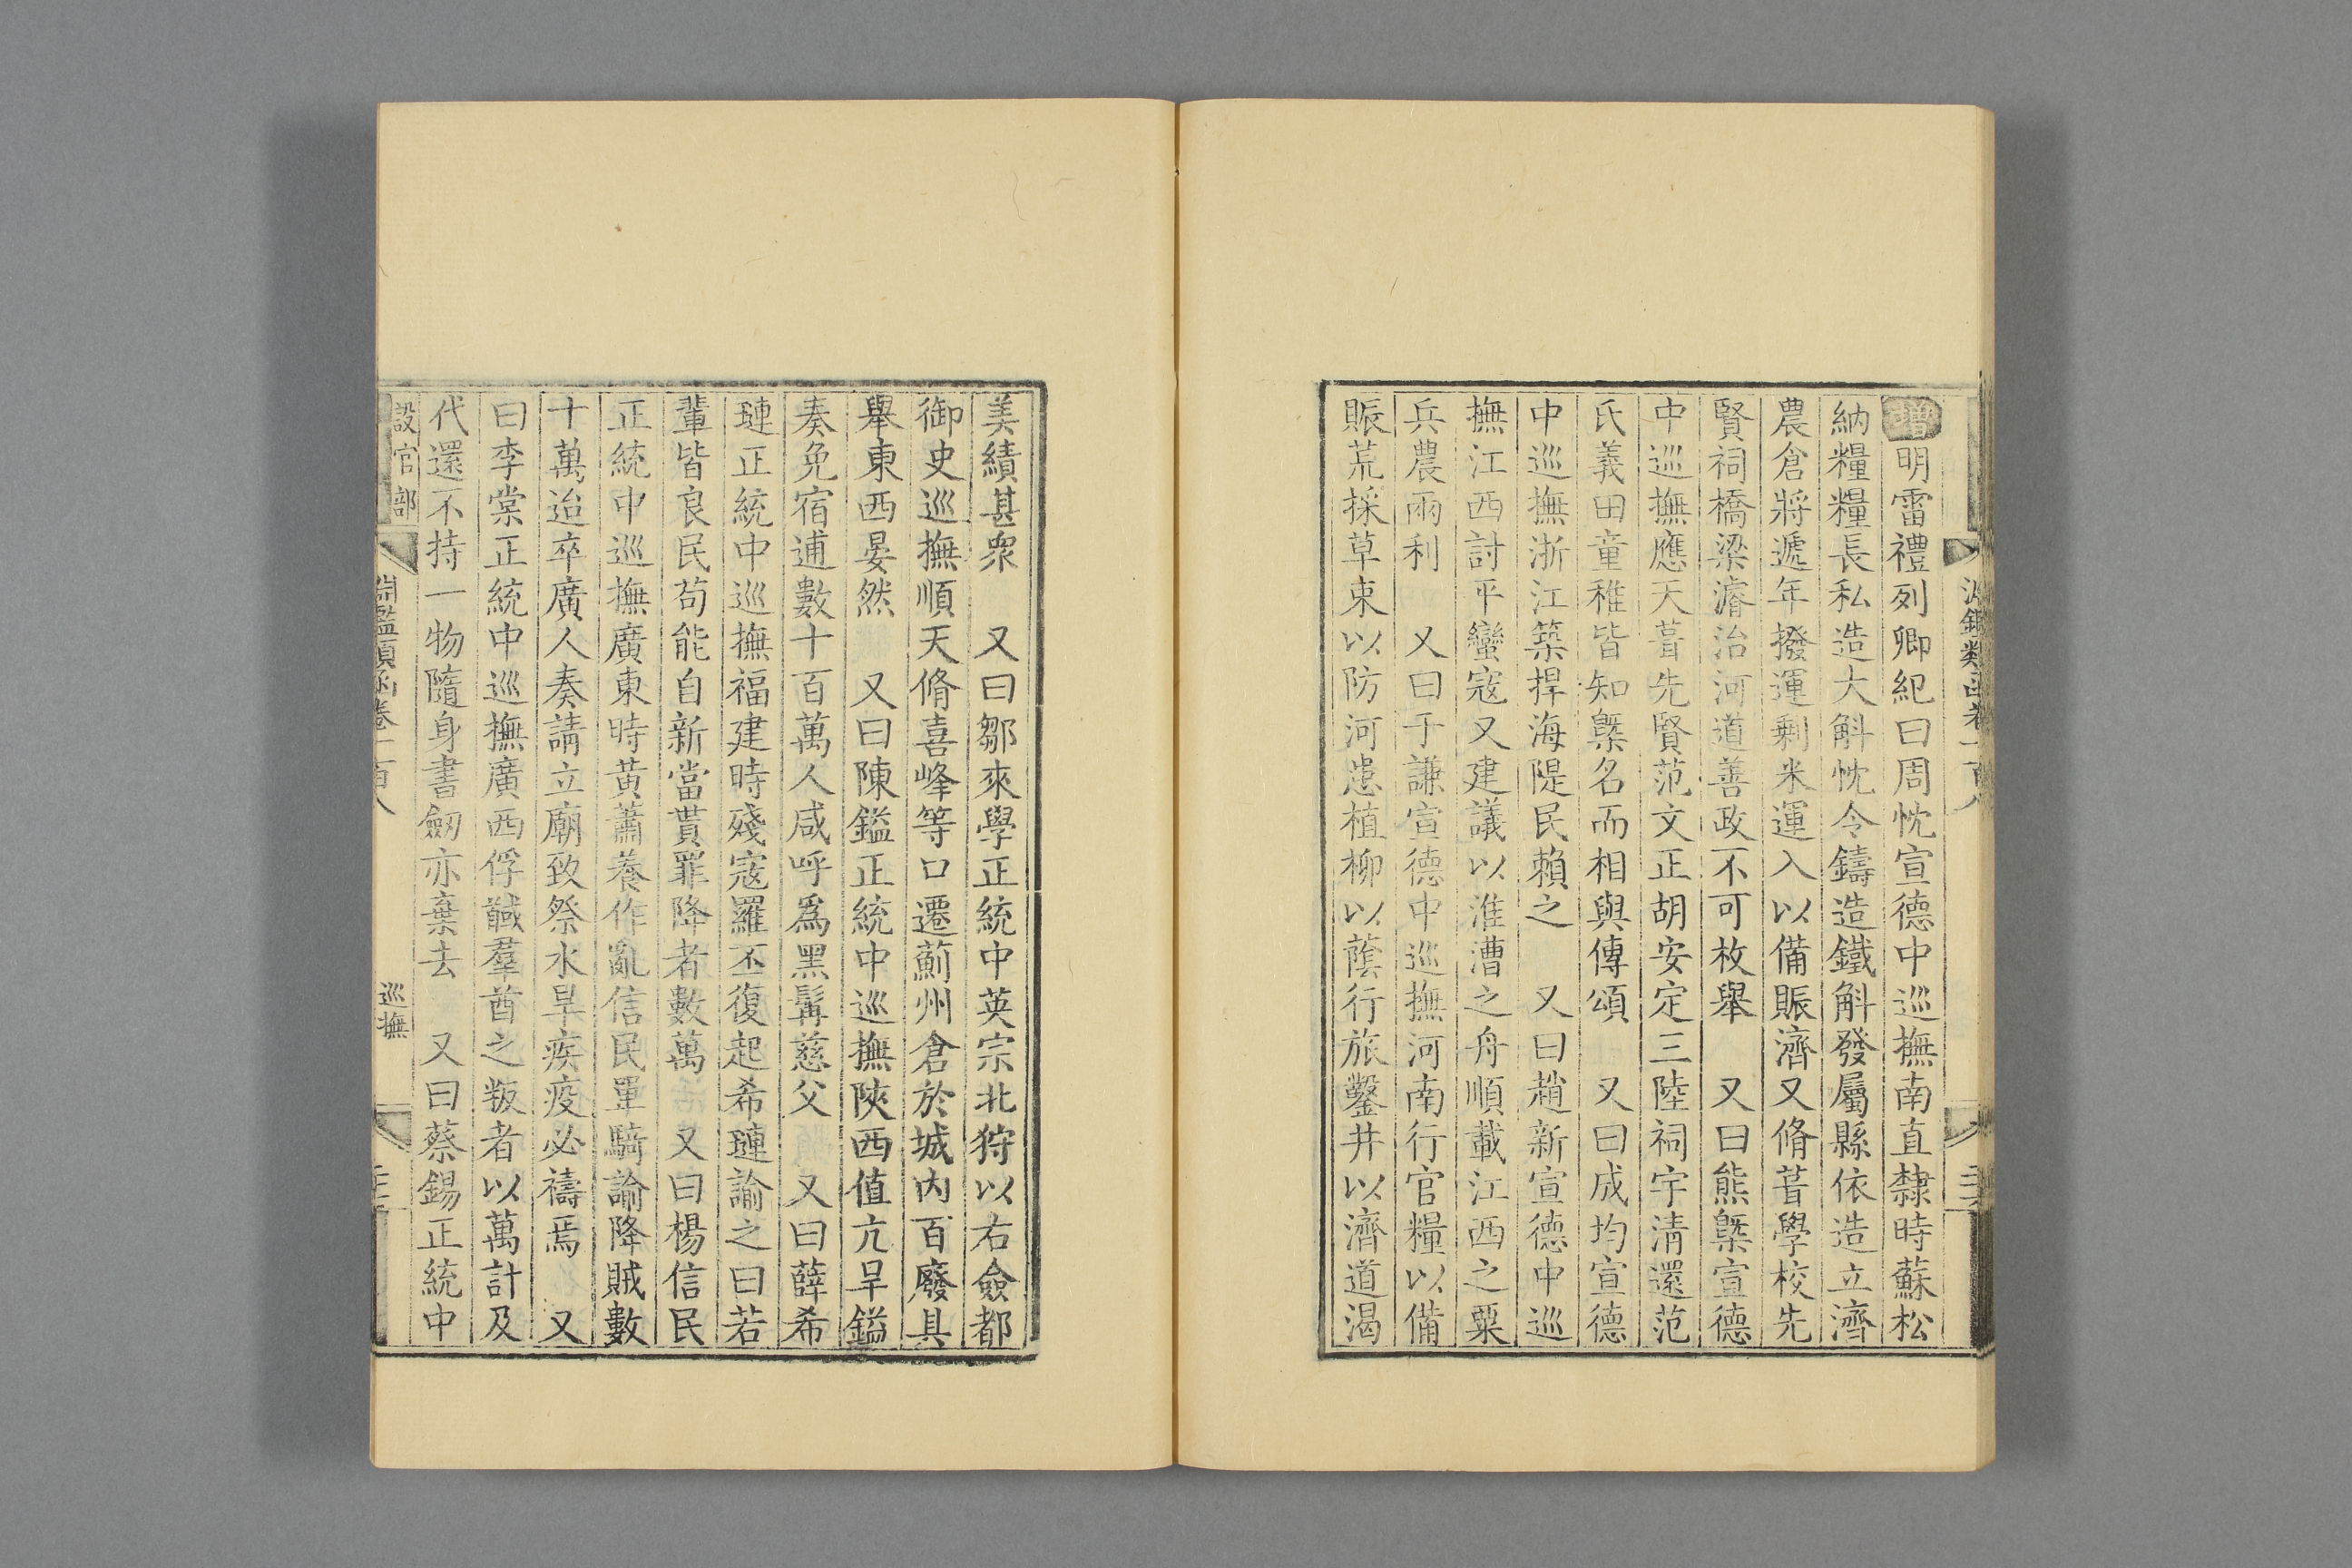 增明雷禮列卿紀曰周忱宣德中巡撫南直隸時蘇松
納糧糧長私造大斛忱令鑄造鐵斛發屬縣依造立濟
農倉將遞年撥運剩米運入以備賑濟又脩葺學校先
賢祠橋梁濬治河道善政不可枚舉　又曰熊槩宣德
中巡撫應天葺先賢范文正胡安定三陸祠宇清還范
氏義田童稚皆知槩名而相與傳頌　又曰成均宣德
中巡撫浙江築捍海隄民賴之　又曰趙新宣德中巡
撫江西討平蠻寇又建議以淮漕之舟順載江西之粟
兵農兩利　又曰于謙宣德中巡撫河南行官糧以備
賑荒採草束以防河患植柳以蔭行旅鑿井以濟道渴
美績甚衆　又曰鄒來學正統中英宗北狩以右僉都
御史巡撫順天脩喜峰等口遷薊州倉於城內百廢具
舉東西晏然　又曰陳鎰正統中巡撫陝西值亢旱鎰
奏免宿逋數十百萬人咸呼爲黑髯慈父　又曰薛希
璉正統中巡撫福建時殘寇羅丕復起希璉諭之曰若
輩皆良民苟能自新當貰罪降者數萬　又曰楊信民
正統中巡撫廣東時黄蕭養作亂信民單騎諭降賊數
十萬迨卒廣人奏請立廟致祭水旱疾疫必禱焉　又
曰李棠正統中巡撫廣西俘馘羣酋之叛者以萬計及
代還不持一物隨身書劒亦棄去　又曰蔡錫正統中
設官部
淵鑑類函卷一百八
巡撫